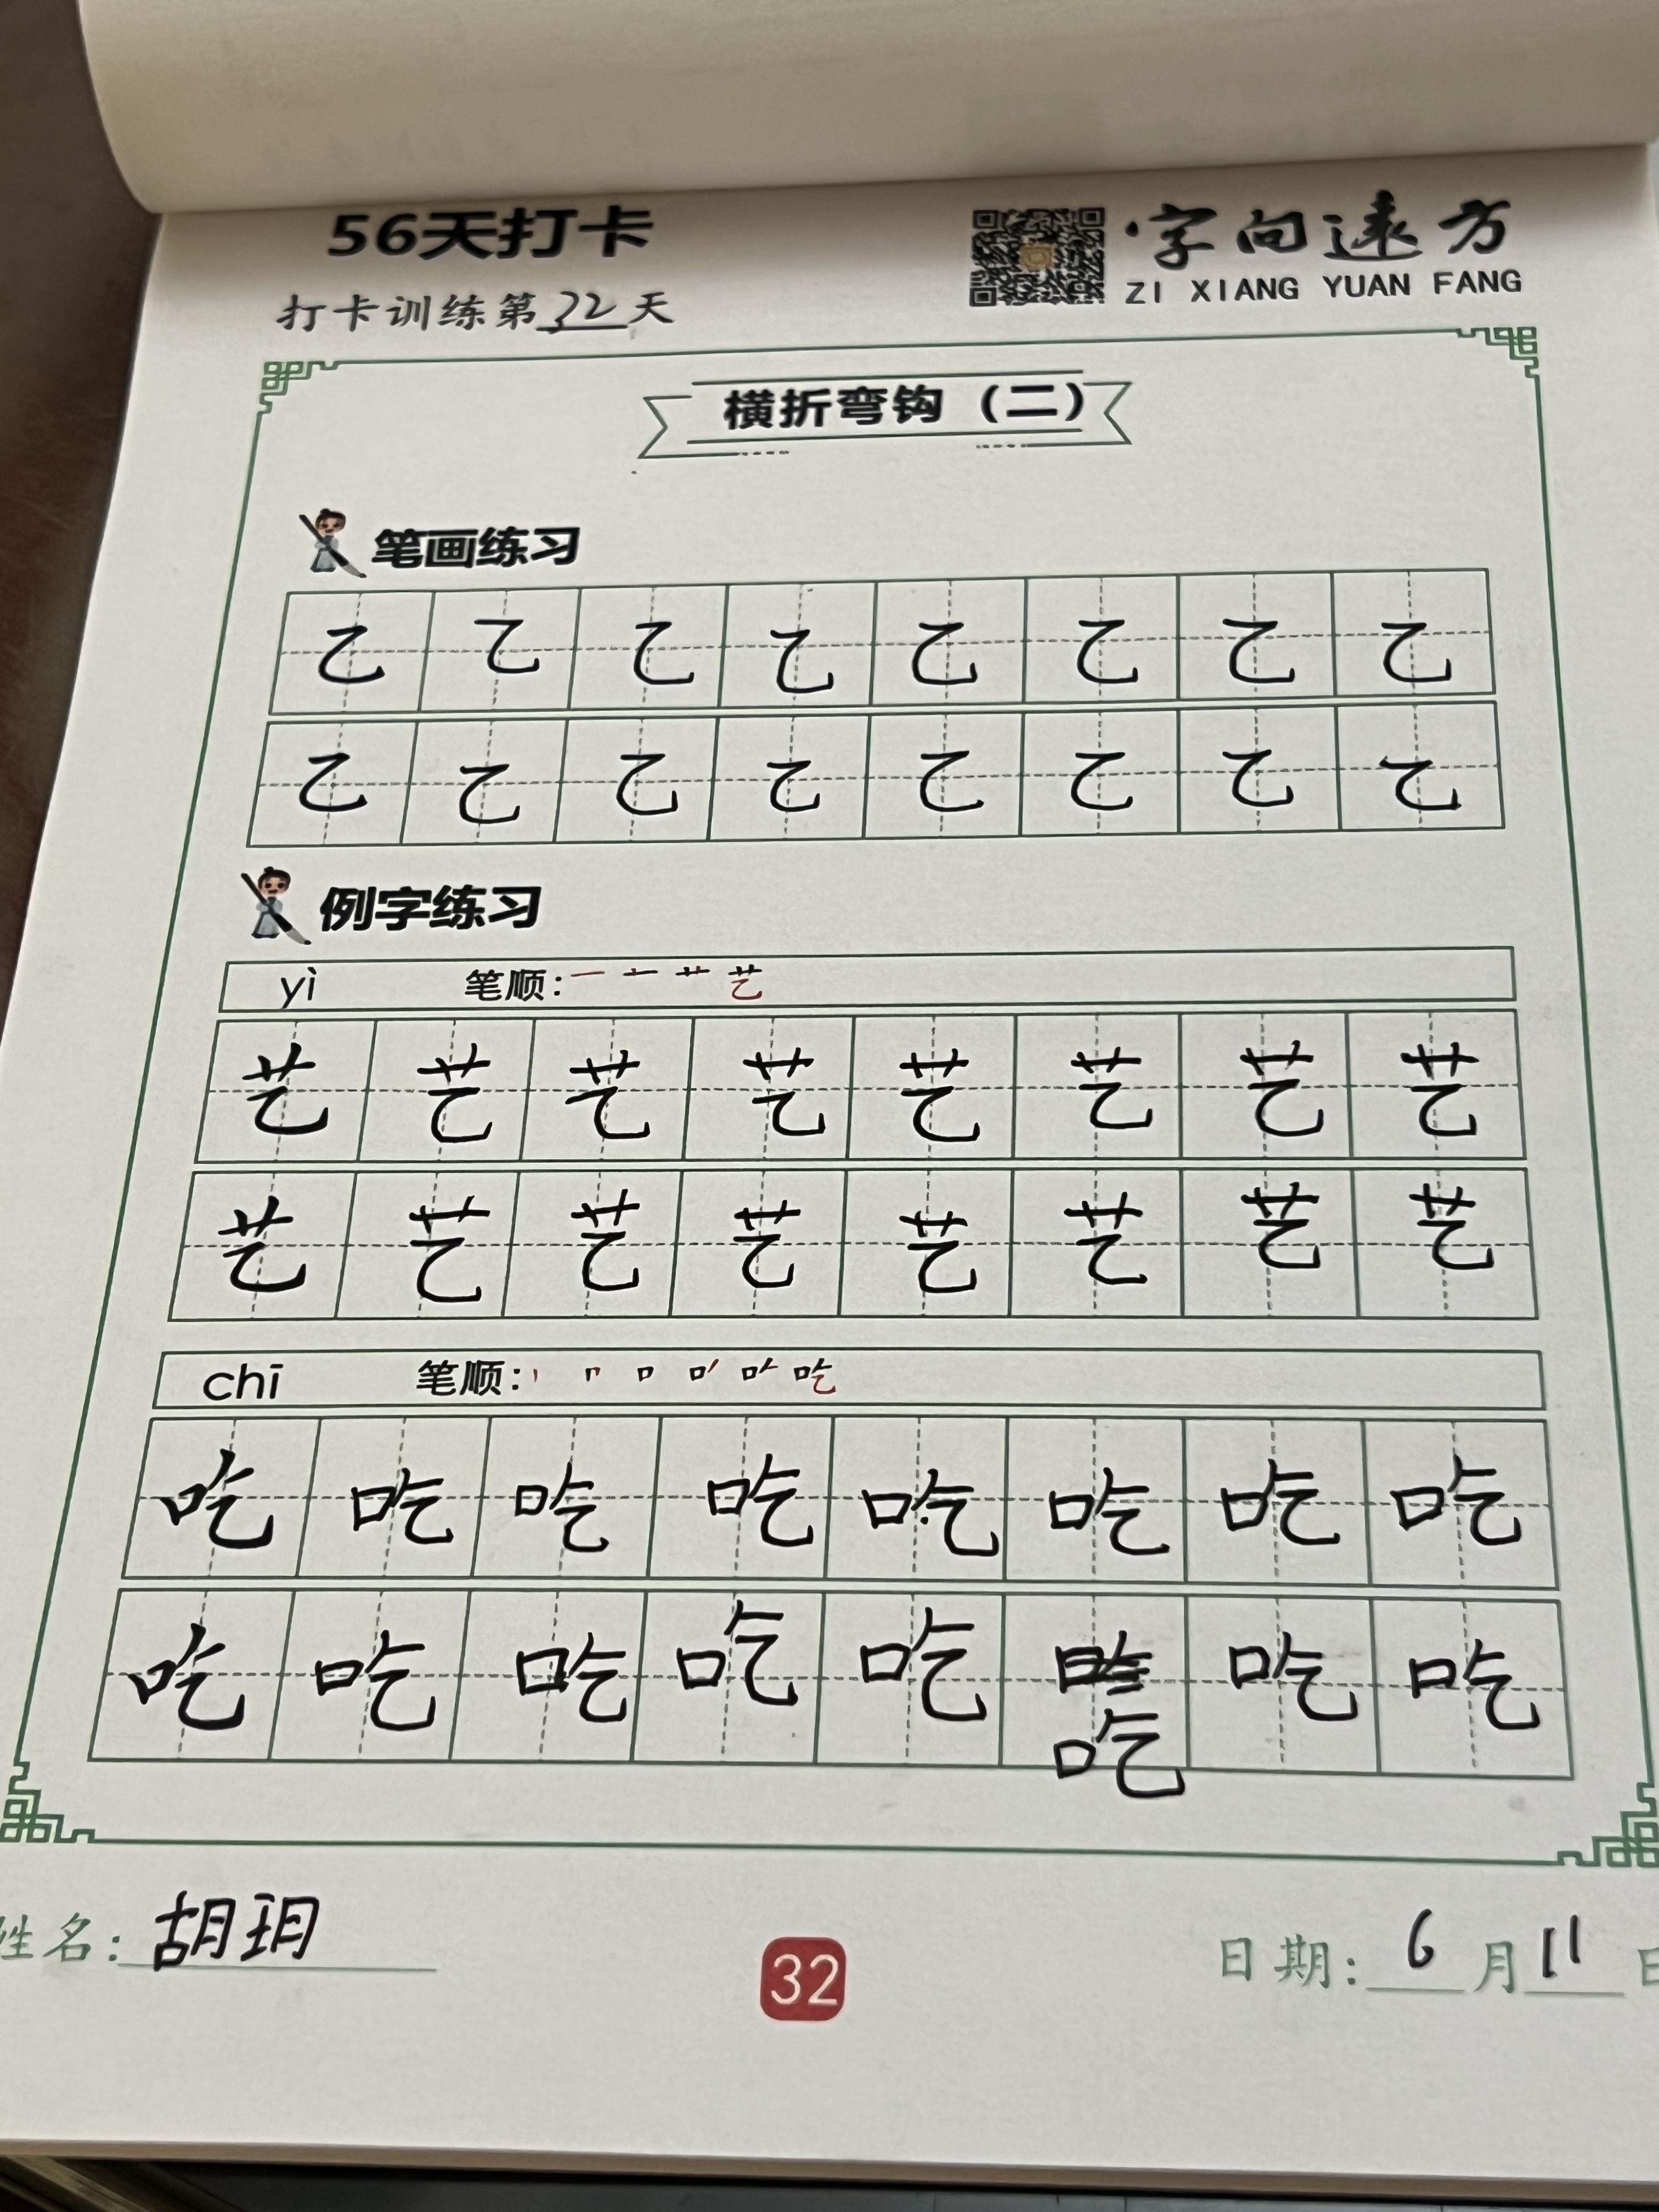 56天打卡
字向远方
ZI XIANG YUAN FANG
打卡训练第32天
横折弯钩（二）
笔画练习
乙 乙 乙 乙 乙 乙 乙 乙
乙 乙 乙 乙 乙 乙 乙 乙
例字练习
yì 笔顺：一 十 艹 艺
艺 艺 艺 艺 艺 艺 艺 艺
艺 艺 艺 艺 艺 艺 艺 艺
chī 笔顺：
吃 吃 吃 吃 吃 吃 吃 吃
吃 吃 吃 吃 吃 吃 吃
吃
姓名：胡玥
32
日期：6月11日